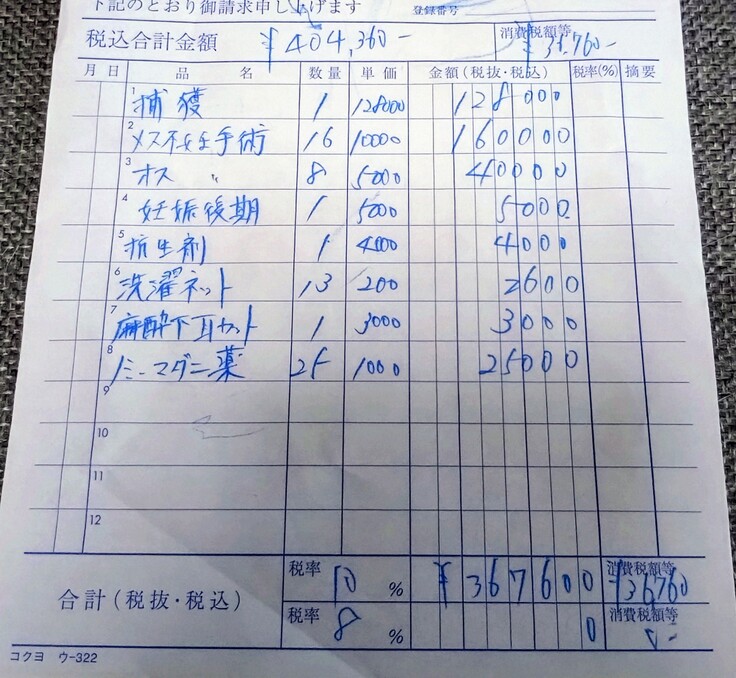 下記のとおり御請求申し上げます
登録番号
税込合計金額 ¥404,360- 消費税額等 ¥36,760-
月 日 品 名 数量 単価 金額(税抜・税込) 税率(%) 摘要
1 捕獲 1 128000 128000
2 メス不妊手術 16 10000 160000
3 オス 〃 8 5000 40000
4 妊娠後期 1 5000 5000
5 抗生剤 1 4000 4000
6 洗濯ネット 13 200 2600
7 麻酔下耳カット 1 3000 3000
8 ノミーマダニ薬 25 1000 25000
9
10
11
12
合計(税抜・税込) 税率 10 % ¥367600 消費税額等 ¥36760
税率 8 % 0 消費税額等
コクヨ ウ-322